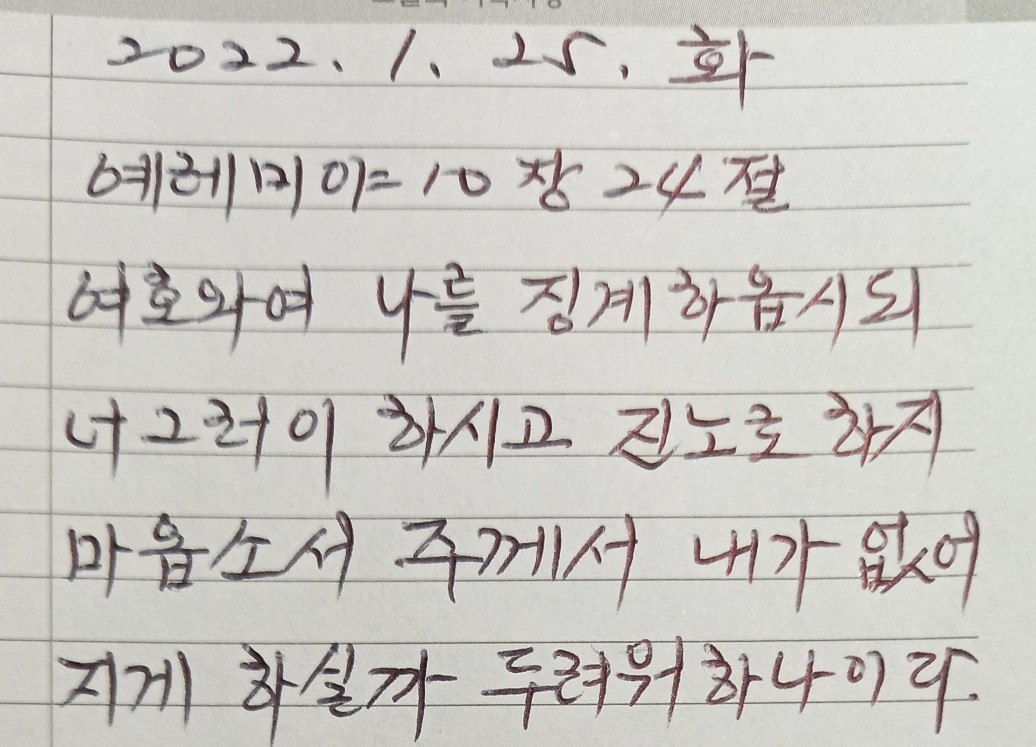 2022. 1. 25. 화
예레미야 10장 24절
여호와여 나를 징계하옵시되
너그러이 하시고 진노로 하지
마옵소서 주께서 내가 없어
지게 하실까 두려워하나이다.